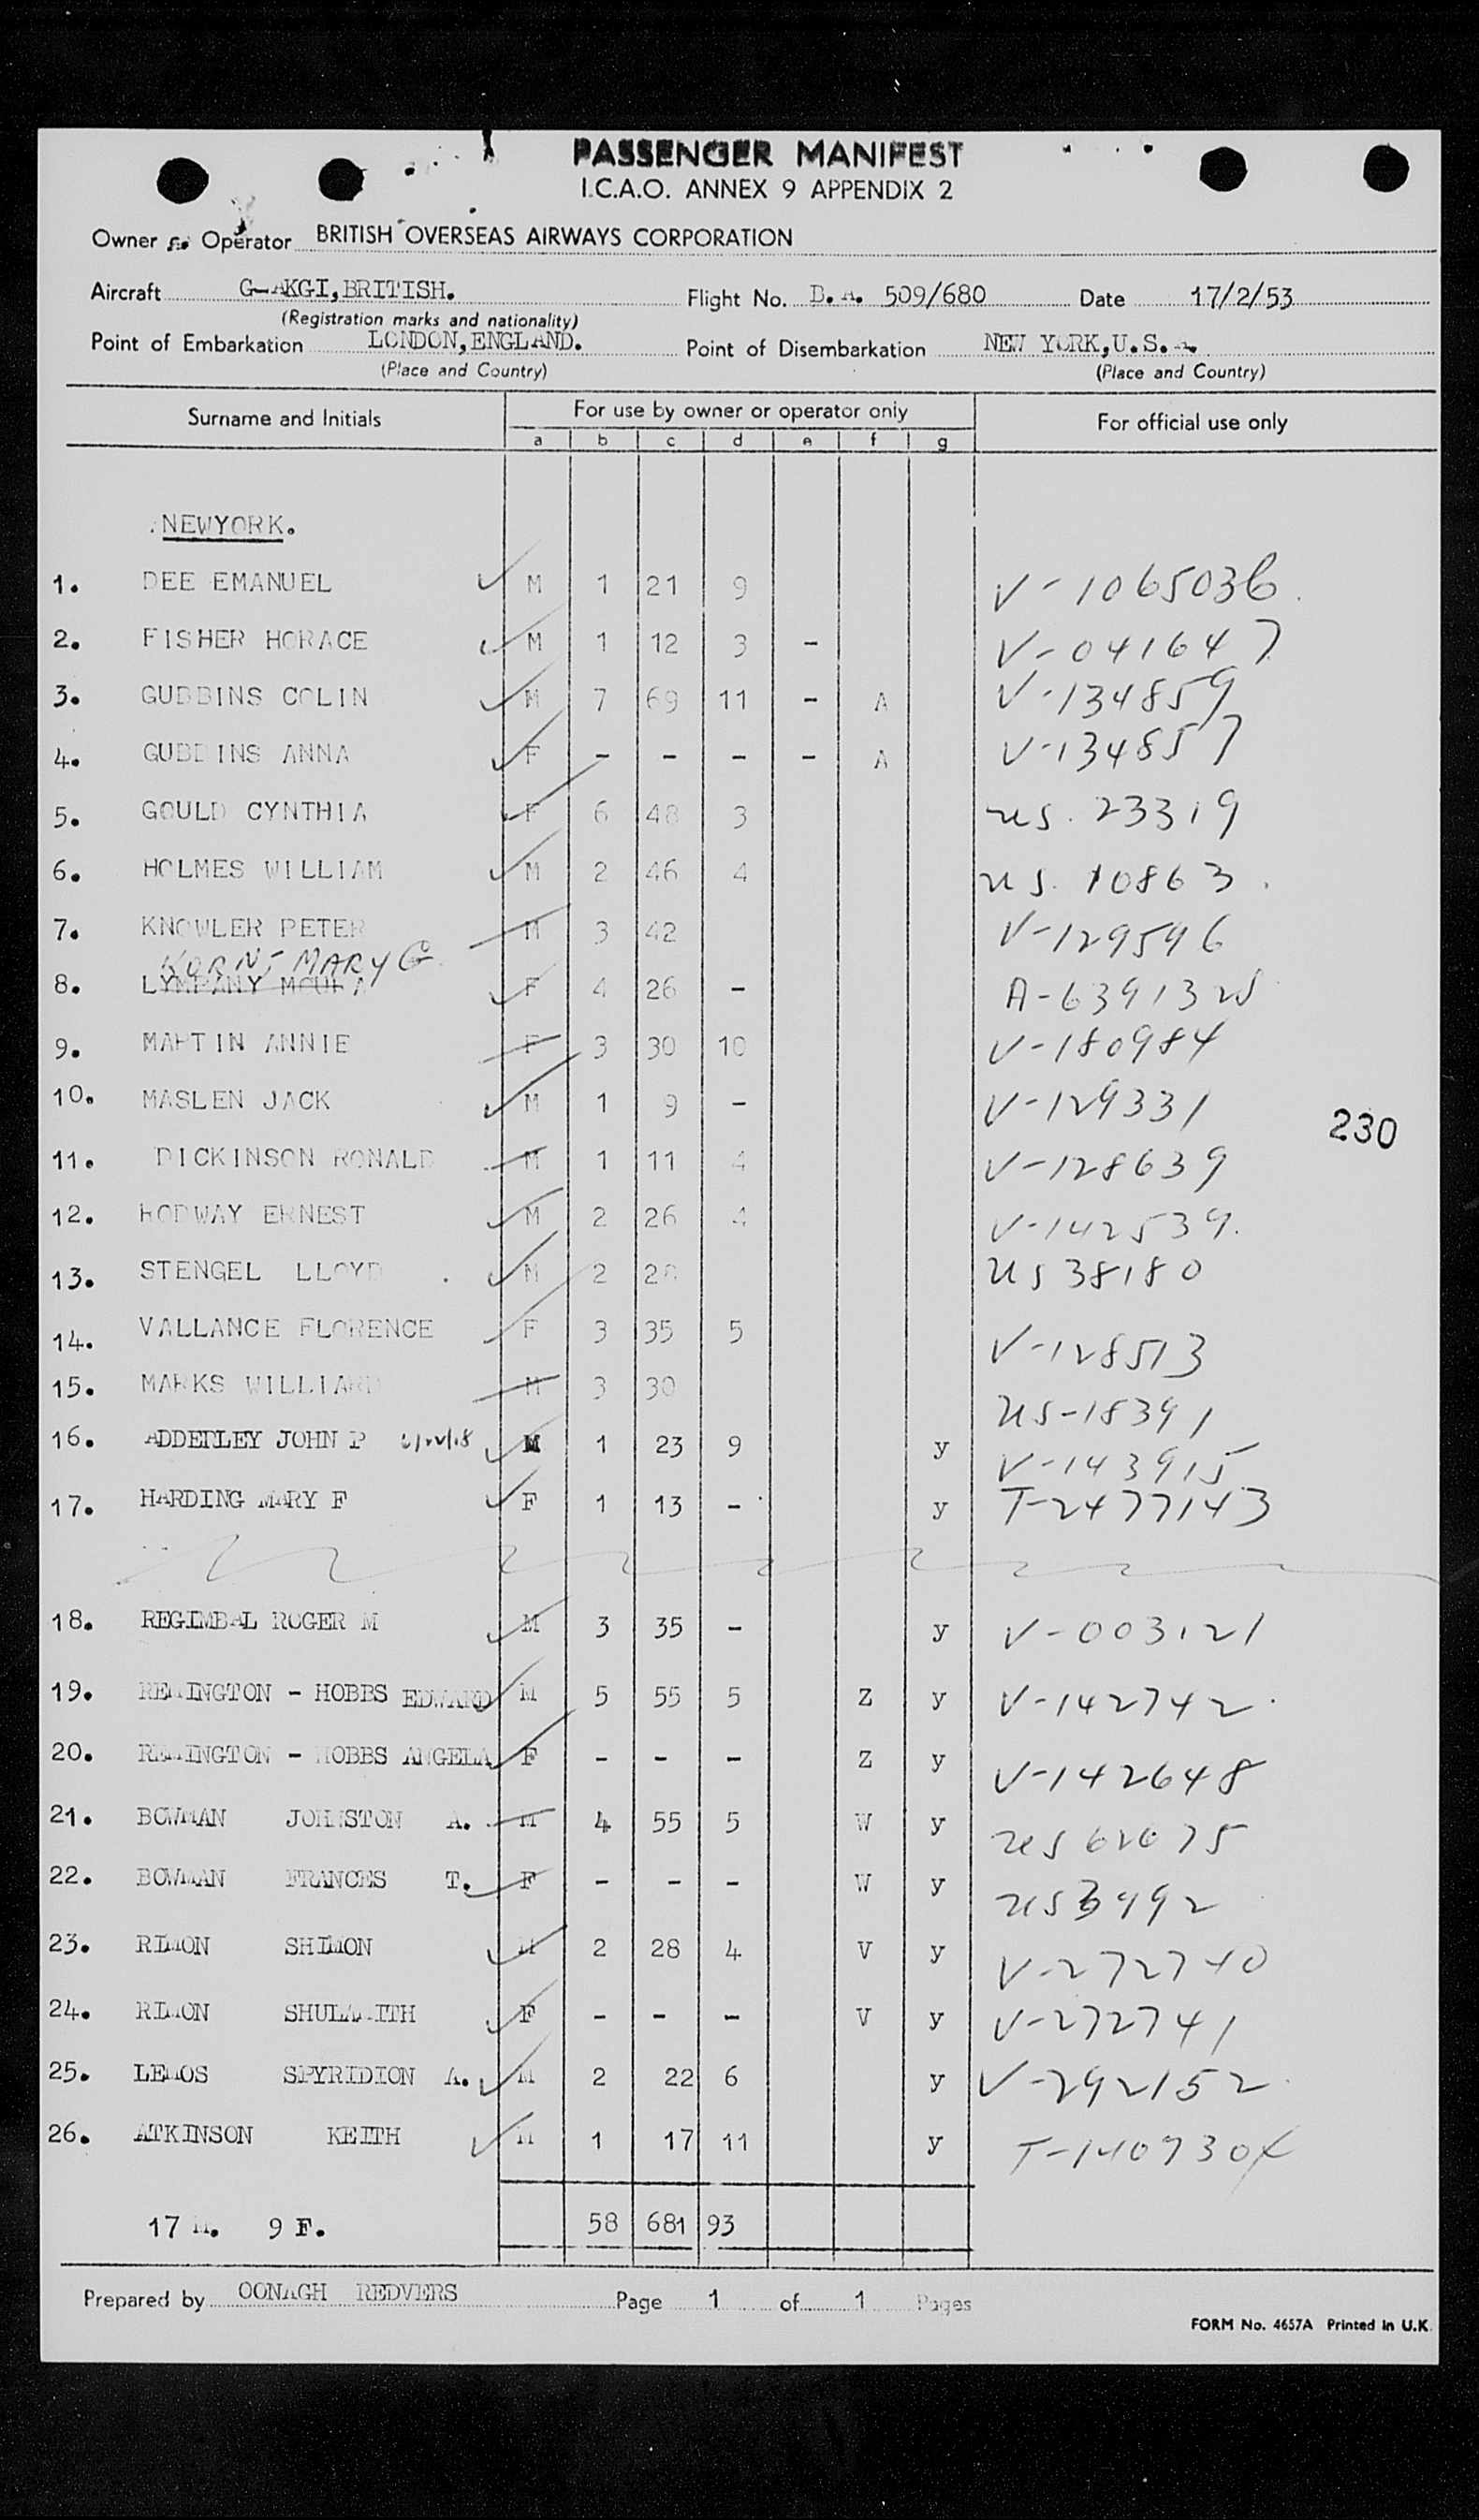 PASSENGER MANIFEST
I.C.A.O. ANNEX 9 APPENDIX 2
Owner or Operator BRITISH OVERSEAS AIRWAYS CORPORATION
Aircraft G-AKGI, BRITISH. Flight No. B.A. 509/680 Date 17/2/53
(Registration marks and nationality)
Point of Embarkation LONDON, ENGLAND. Point of Disembarkation NEW YORK, U.S.A.
(Place and Country) (Place and Country)
Surname and Initials For use by owner or operator only For official use only
a b c d e f g
NEWYORK.
1. DEE EMANUEL M 1 21 9 V-1065036
2. FISHER HORACE M 1 12 3 - V-041647
3. GUBBINS COLIN M 7 69 11 - A V-134859
4. GUBBINS ANNA F - - - - A V-134857
5. GOULD CYNTHIA F 6 48 3 US. 23319
6. HOLMES WILLIAM M 2 46 4 US. 10863
7. KNOWLER PETER M 3 42 V-129596
KORN - MARY G
8. LYMPANY MOURA F 4 26 - A-6391325
9. MARTIN ANNIE F 3 30 10 V-180984
10. MASLEN JACK M 1 9 - V-129331
230
11. DICKINSON RONALD M 1 11 4 V-128639
12. RODWAY ERNEST M 2 26 4 V-142539.
13. STENGEL LLOYD M 2 28 US 38180
14. VALLANCE FLORENCE F 3 35 5 V-128513
15. MARKS WILLIARD M 3 30 US-18391
16. ADDERLEY JOHN P M 1 23 9 y V-143915
17. HARDING MARY F F 1 13 - y T-2477143
18. REGIMBAL ROGER M M 3 35 - y V-003121
19. REMINGTON - HOBBS EDWARD M 5 55 5 Z y V-142742
20. REMINGTON - HOBBS ANGELA F - - - Z y V-142648
21. BOWMAN JOHNSTON A. M 4 55 5 W y US
22. BOWMAN FRANCES T. F - - - W y US 3992
23. RIMON SHIMON M 2 28 4 V y V-272740
24. RIMON SHULAMITH F - - - V y V-272741
25. LEMOS SPYRIDION A. M 2 22 6 y V-292152
26. ATKINSON KEITH M 1 17 11 y
17 M. 9 F. 58 681 93
Prepared by OONAGH REDVERS Page 1 of 1 Pages
FORM No. 4657A Printed in U.K.